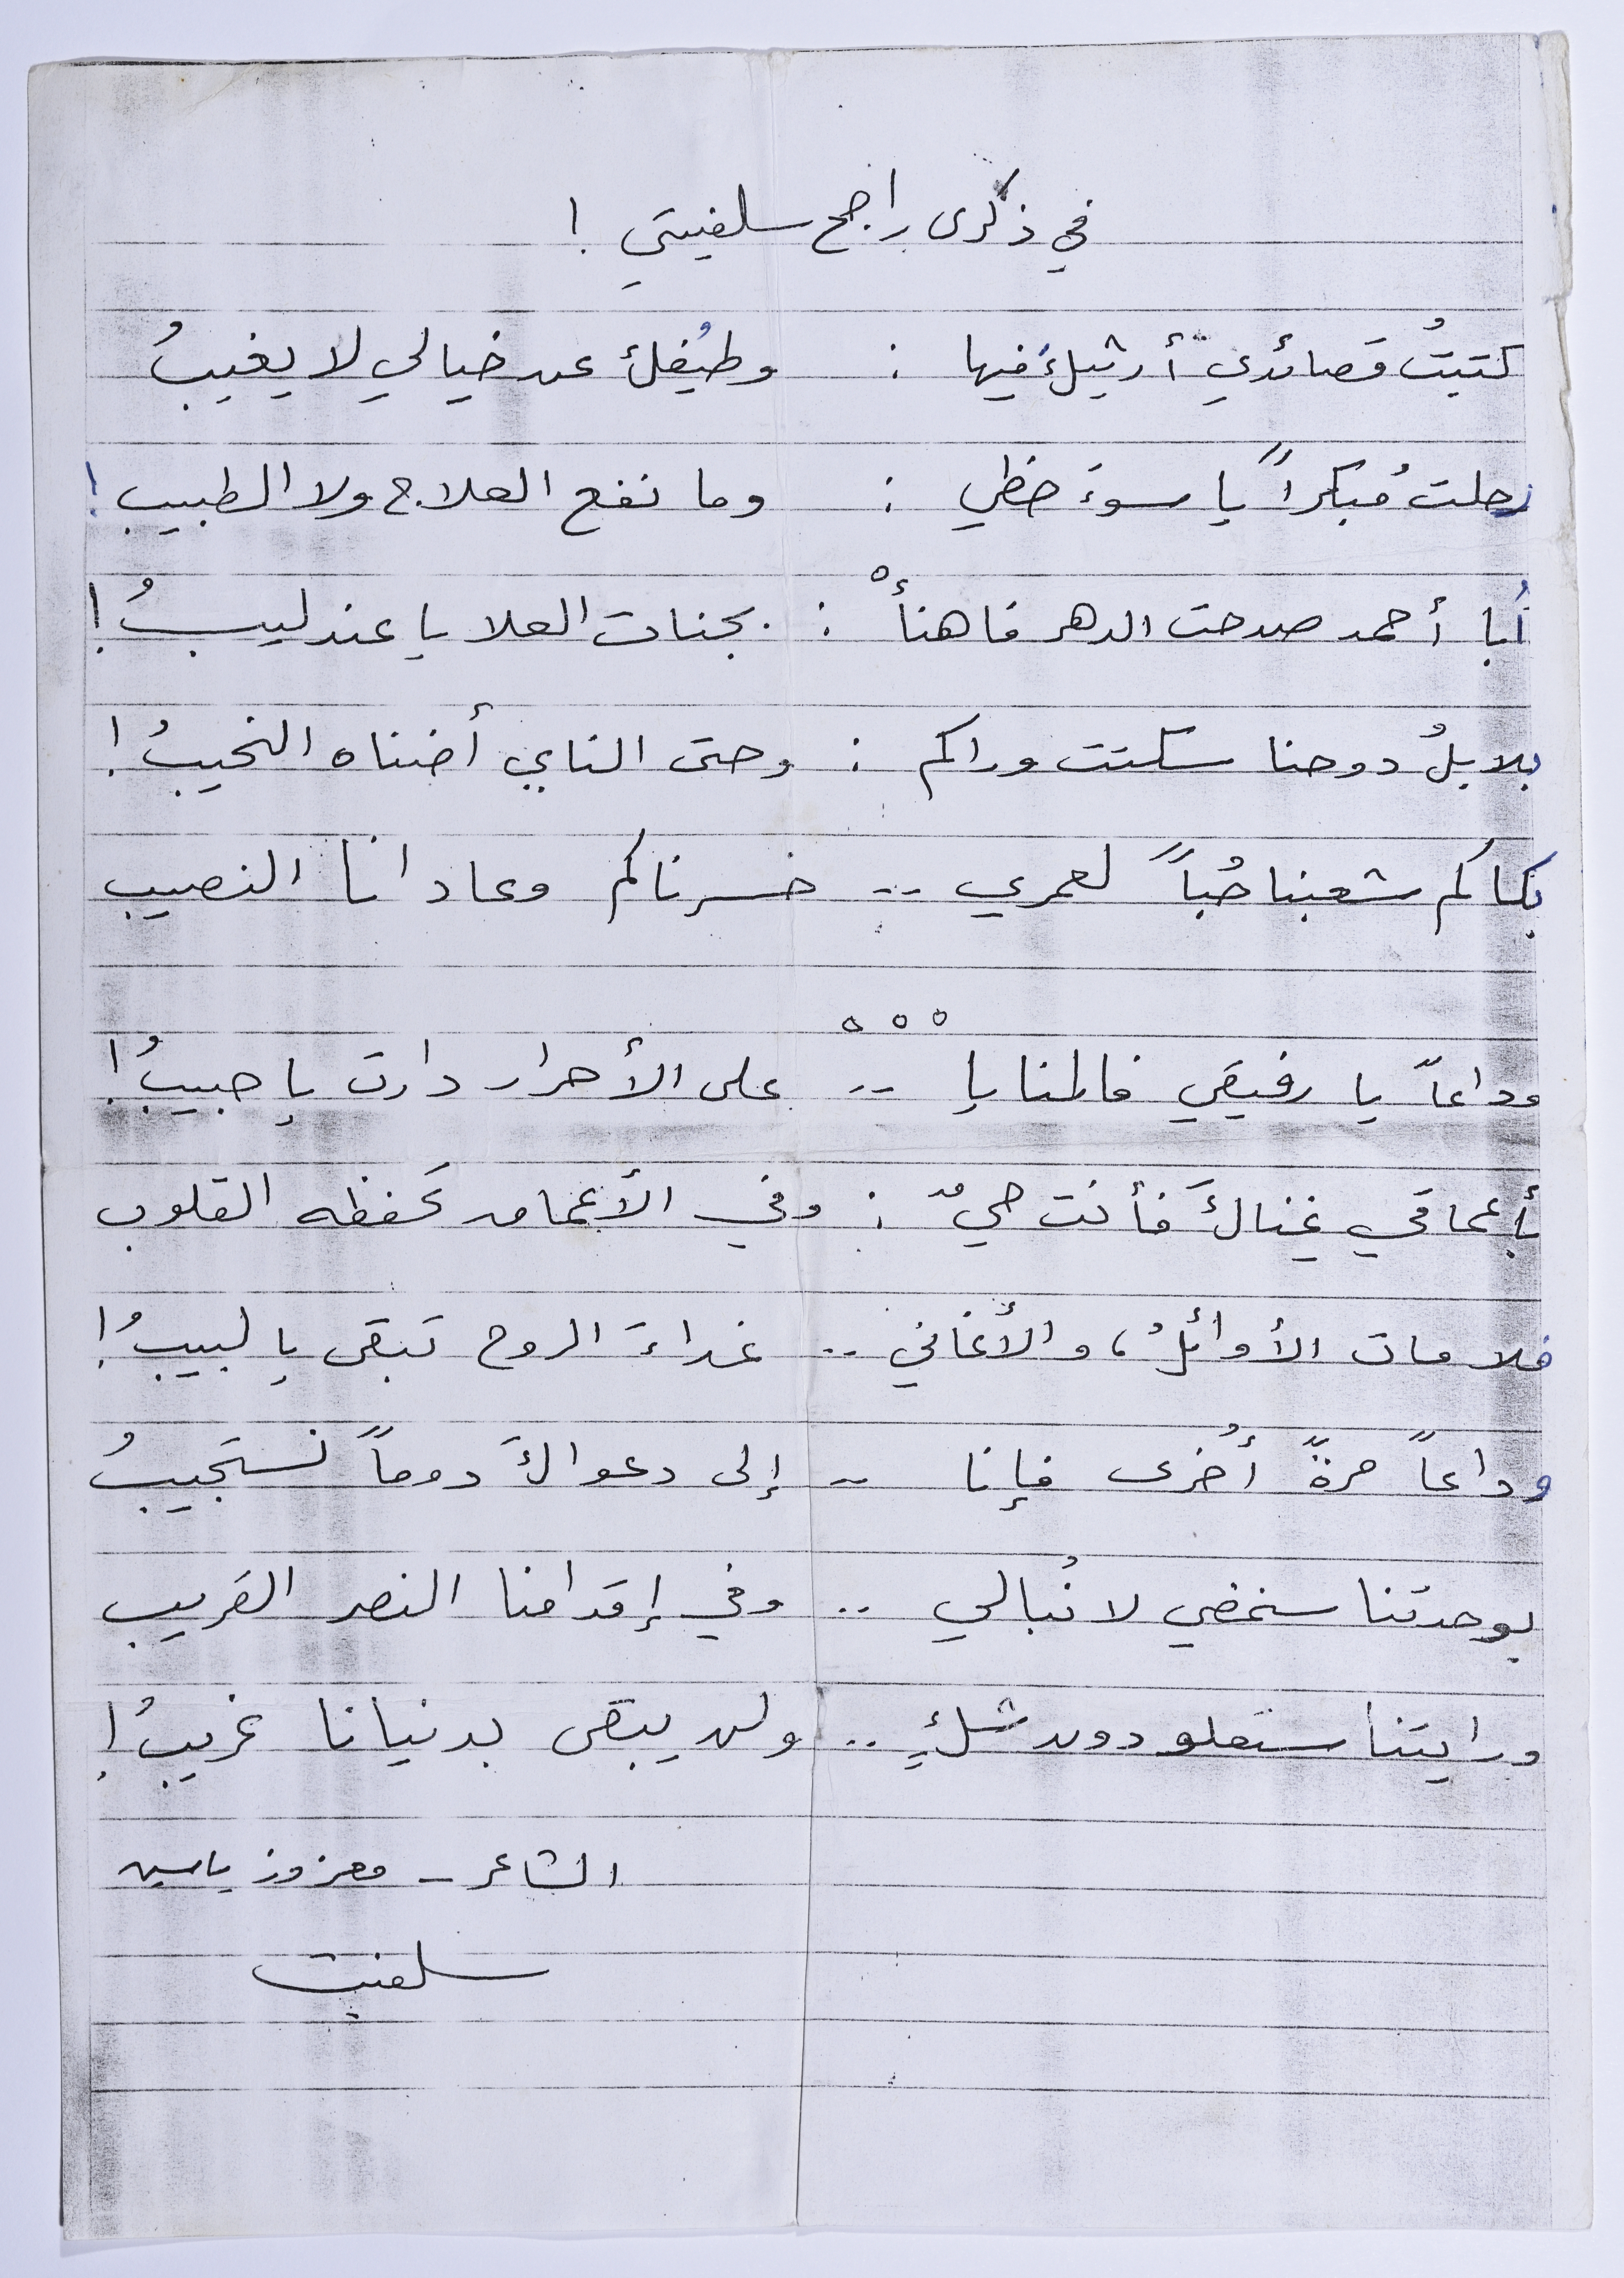 في ذكرى راجح سلفيتي !
كتبتُ قصائدي أرثيك فيها : وطيفُك عن خيالي لا يغيبُ
رحلتُ مُبكراً يا سوءَ حظي : وما نفع العلاج ولا الطبيب !
أبا أحمد صدحت الدهر فاهنأْ : بجنات العلا يا عندليبُ !
بلابلُ دوحنا سكتت وراكم : وحتى الناي أضناه النحيبُ !
بكاكم شعبنا حُباً لعمري .. خسرناكم وعادانا النصيب
ْ ْ ْ
وداعاً يا رفيقي فالمنايا .. على الأحرار دارت يا حبيبُ !
بأعماقي غناكَ فأنت حيٌ : وفي الأعماق تحفظه القلوب
فلا مات الأوائلُ، والأغاني .. غداءَ الروح تبقى يا لبيبُ !
وداعاً مرةً أُخرى فإنا .. إلى دعواكَ دوماً نستجيبُ
بوحدتنا سنمضي لا نُبالي .. وفي إقدامنا النصر القريب
ورايتنا ستعلو دون شكٍ .. ولن يبقى بدنيانا غريبُ !
الشاعر - معزوز ياسين
سلفيت